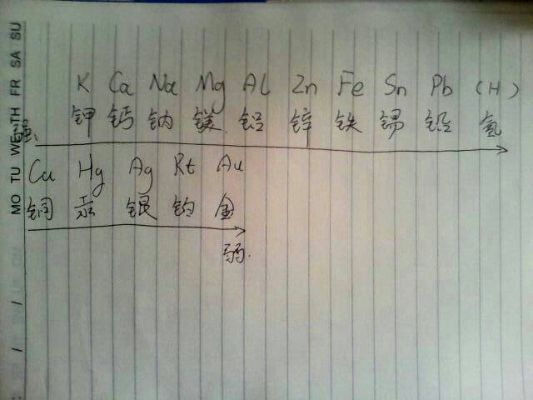 MO TU WE TH FR SA SU
K Ca Na Mg Al Zn Fe Sn Pb (H)
钾 钙 钠 镁 铝 锌 铁 锡 铅 氢
强
Cu Hg Ag Pt Au
铜 汞 银 铂 金
弱.